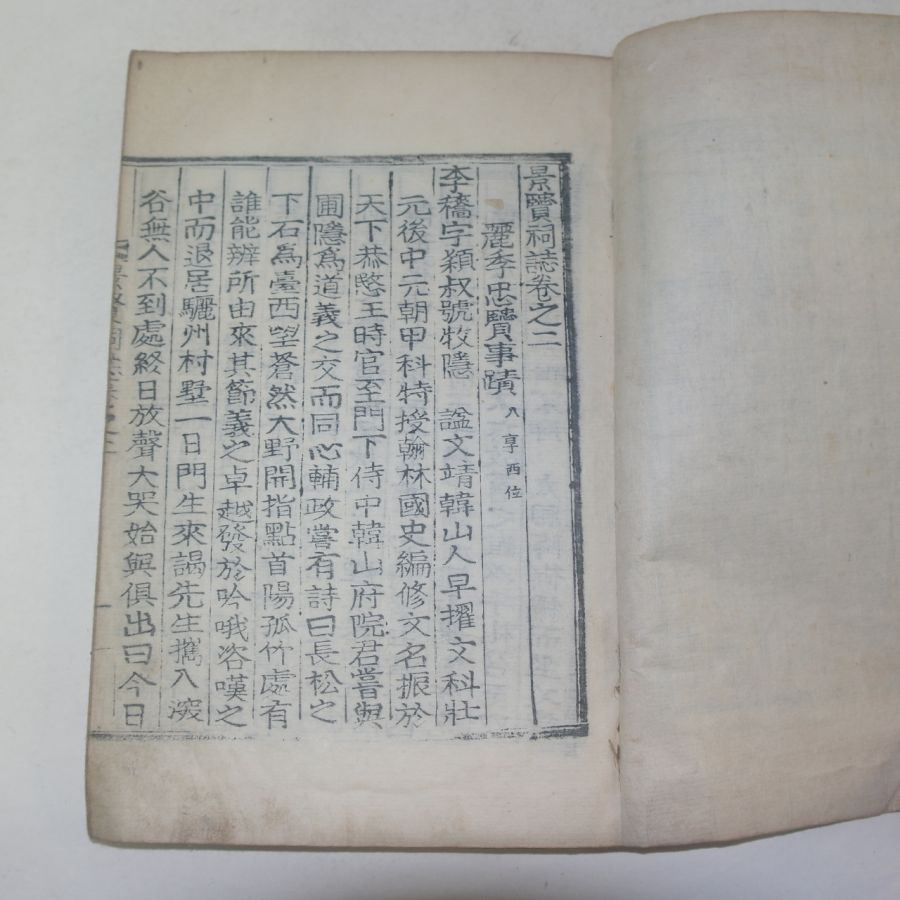 景賢祠誌卷之二
麗季忠賢事蹟 八享西位
李穡字穎叔號牧隱 諡文靖韓山人早擢文科壯
元後中元朝甲科特授翰林國史編修文名振於
天下恭愍王時官至門下侍中韓山府院君嘗與
圃隱爲道義之交而同心輔政嘗有詩曰長松之
下石爲臺西望蒼然大野開指點首陽孤竹處有
誰能辨所由來其節義之卓越發於吟哦咨嘆之
中而退居驪州村墅一日門生來謁先生携入深
谷無人不到處終日放聲大哭始與俱出曰今日